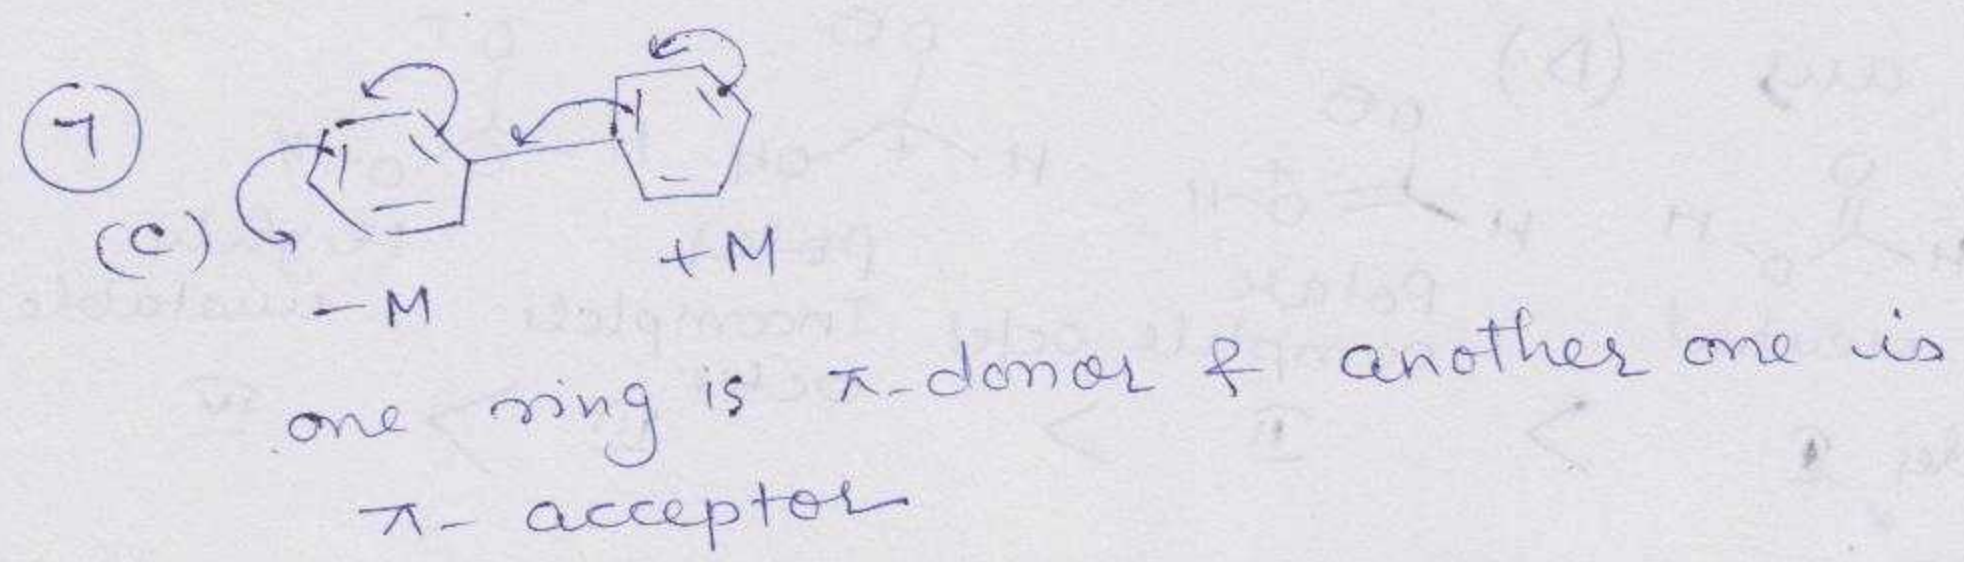 7
(C)
+M
-M
one ring is π-donor & another one is
π- acceptor